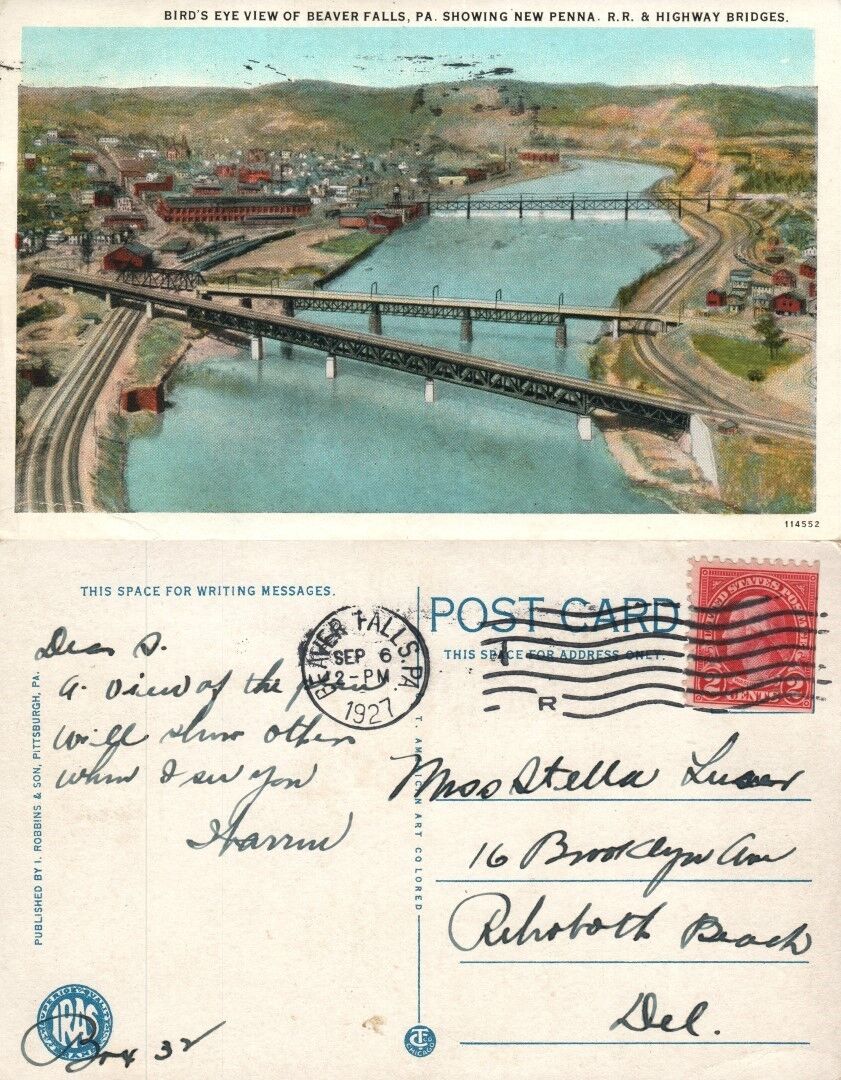 BIRD'S EYE VIEW OF BEAVER FALLS, PA. SHOWING NEW PENNA. R.R. & HIGHWAY BRIDGES.
114552
THIS SPACE FOR WRITING MESSAGES.
Dear S.
A view of the
will show others
when I see you
PUBLISHED BY I. ROBBINS & SON, PITTSBURGH, PA.
SUPERIOR QUALITY
IRAS
Box 32
BEAVER FALLS, PA
SEP 6
2-PM
1927
R
C. T. AMERICAN ART COLORED
CHICAGO
POST CARD
THIS SPACE FOR ADDRESS ONLY.
UNITED STATES POSTAGE
2 CENTS 2
Miss Stella
16 Brooklyn Ave
Rehoboth Beach
Del.